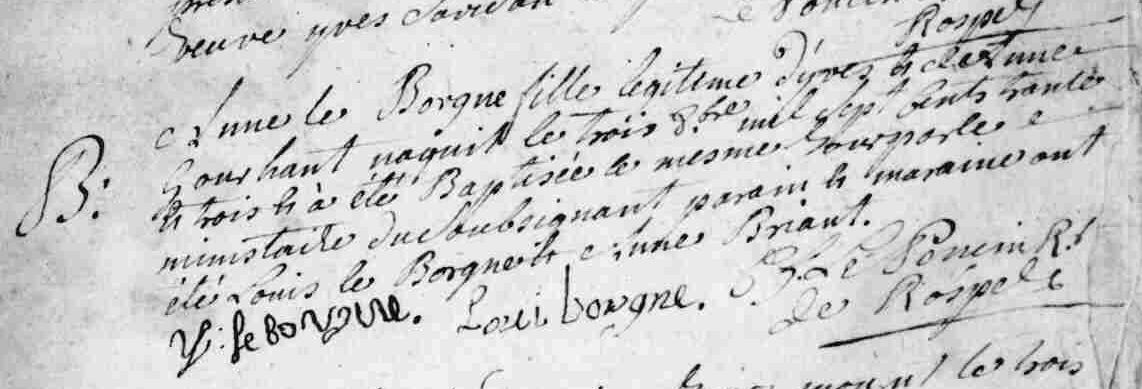 veuve yves
Rospez
B: Anne le Borgne fille legitime d'yves et de Anne
Gourhant naquit le trois 8bre mil sept cents trante
et trois et à été Baptisée le mesme Jour par le
ministaire du Soubsignant parain et maraine ont
été Louis le Borgne et Anne Briant.
Y: le borgne. Loui borgne. Le Poncin Rr
de Rospez
le trois